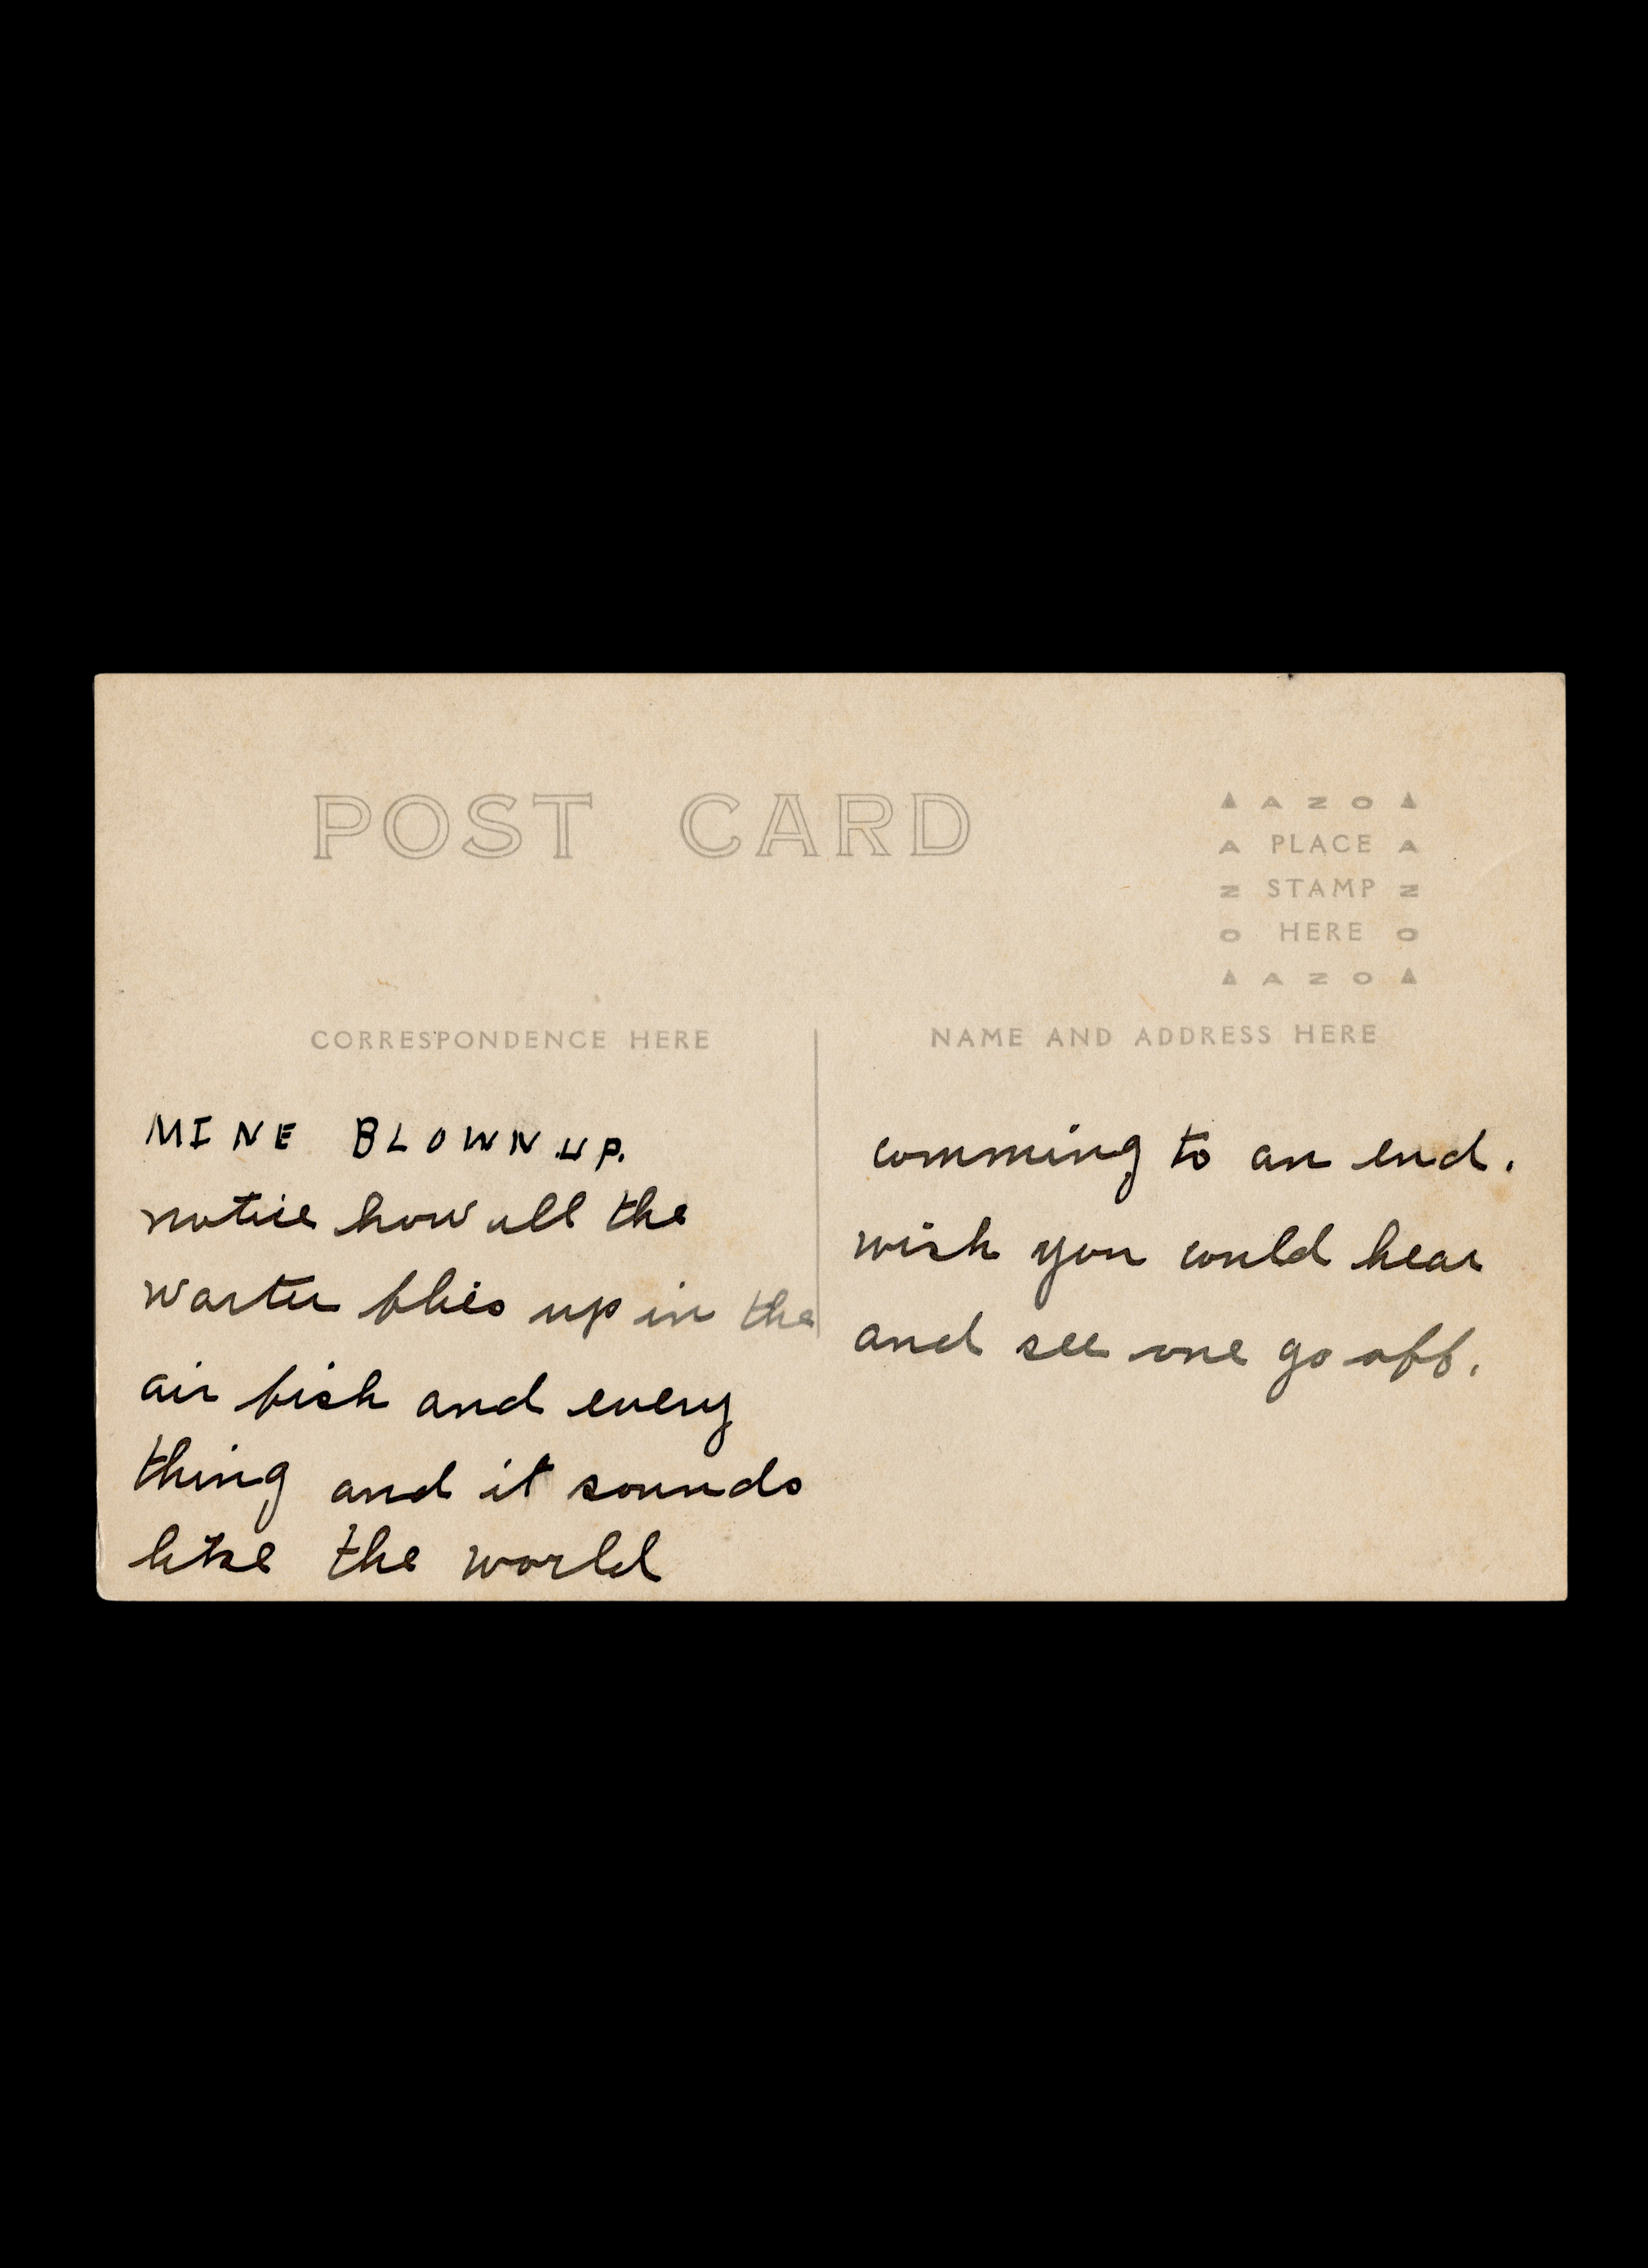 POST CARD
▲ A Z O ▲
A PLACE A
Z STAMP Z
O HERE O
▲ A Z O ▲
CORRESPONDENCE HERE
MINE BLOWN UP.
notice how all the
warter flies up in the
air fish and every
thing and it sounds
like the world
NAME AND ADDRESS HERE
comming to an end.
wish you could hear
and see one go off.